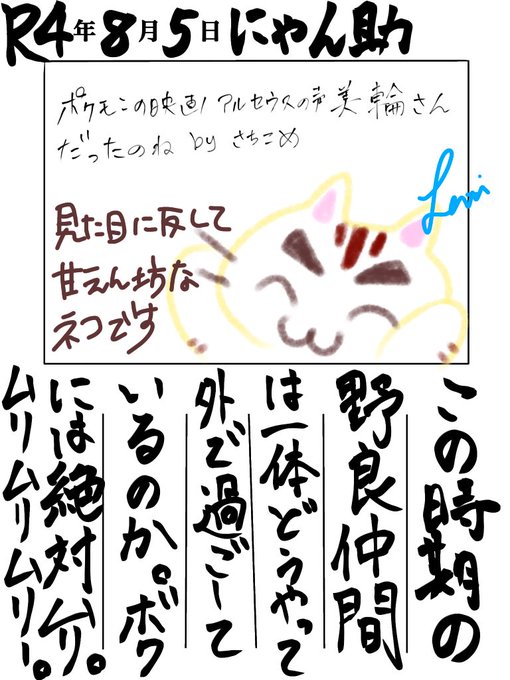 R4年8月5日にゃん助
ポケモンの映画!アルセウスの声美輪さん
だったのね by さちこめ
見た目に反して
甘えん坊な
ネコです
この時期の
野良仲間
は一体どうやって
外で過ごして
いるのか。ボク
には絶対ムリ。
ムリムリムリー。